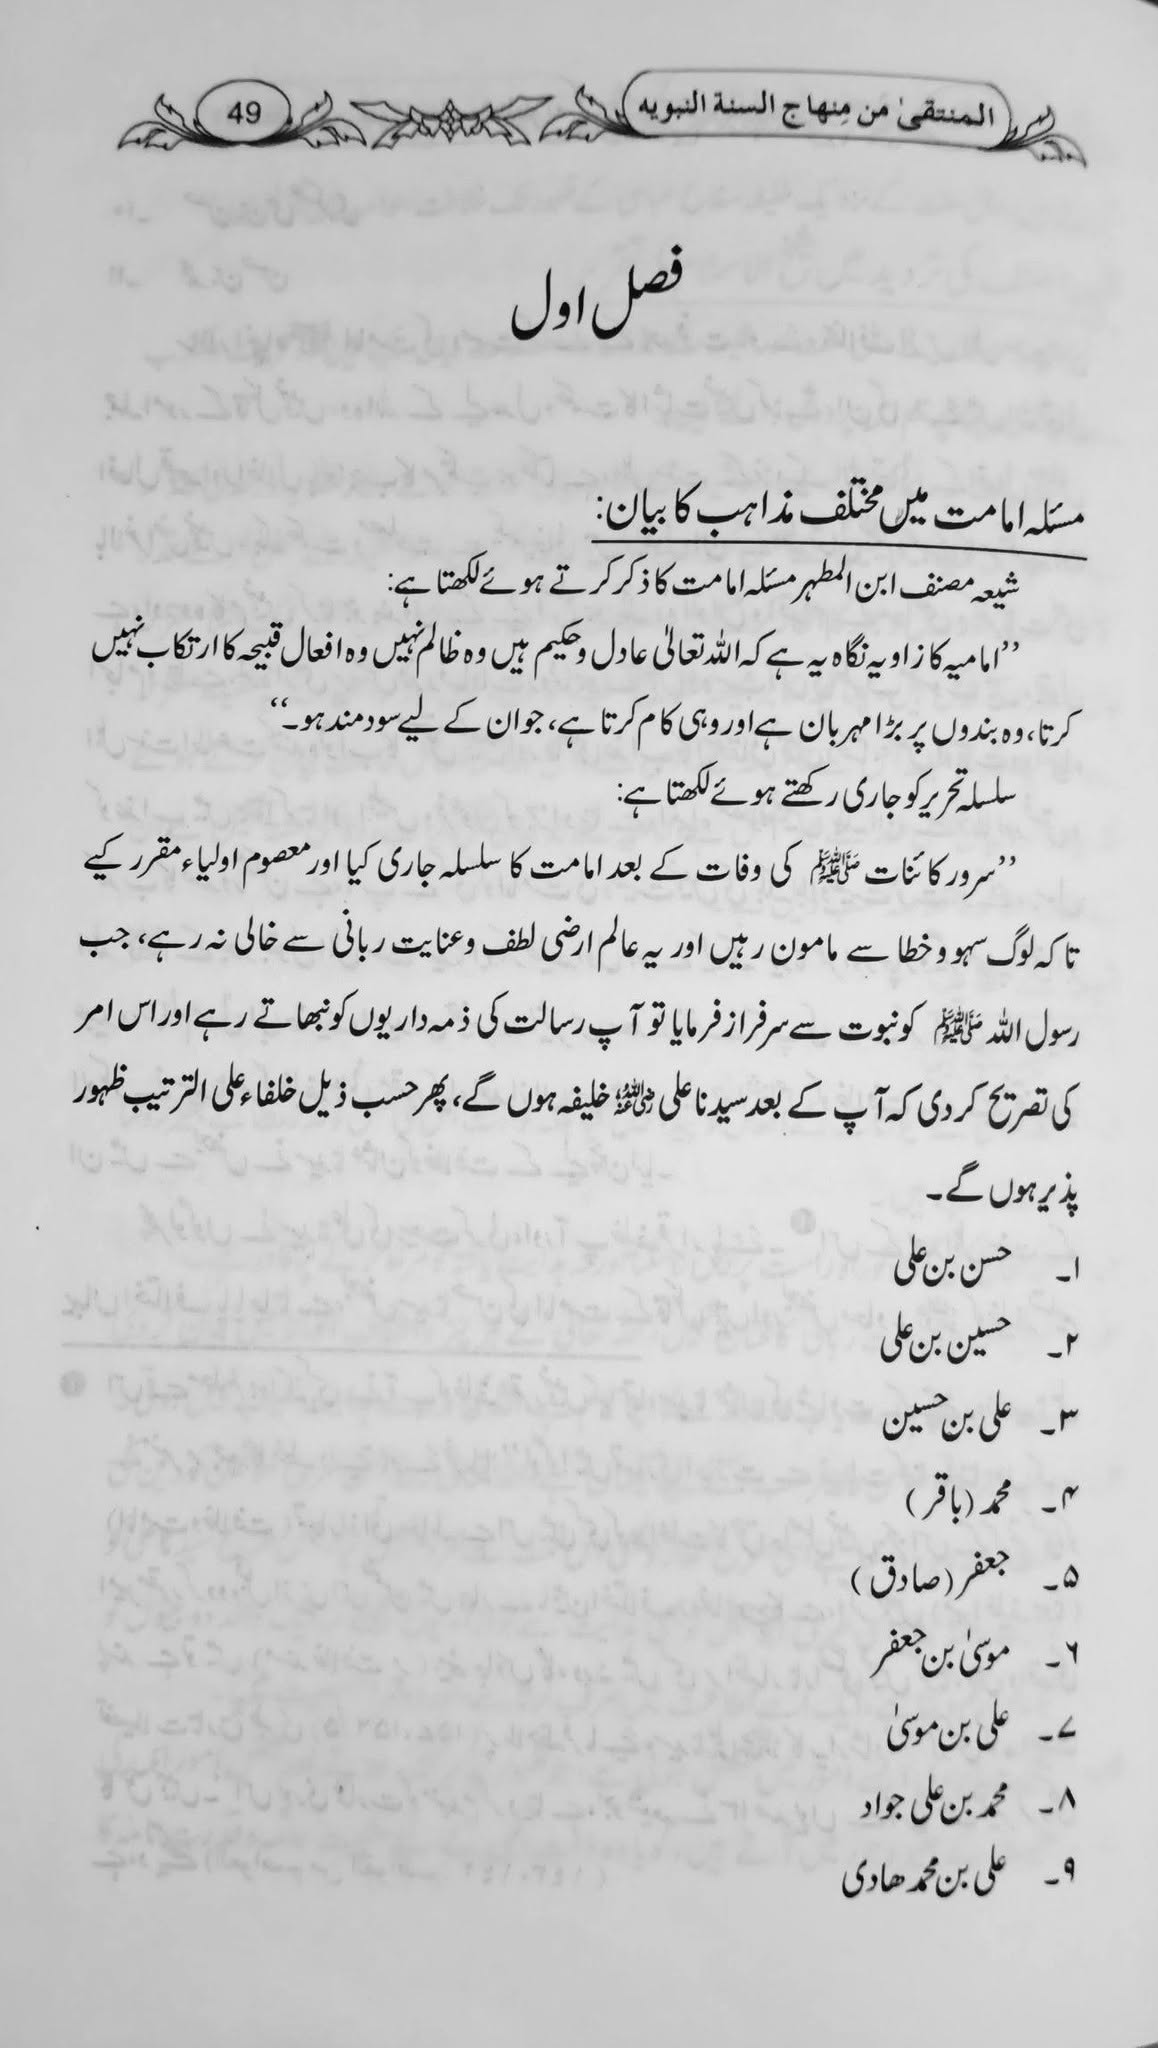 المنتقىٰ من مِنهاج السنة النبويه
49
فصل اول
مسئلہ امامت میں مختلف مذاہب کا بیان:
شیعہ مصنف ابن المطہر مسئلہ امامت کا ذکر کرتے ہوئے لکھتا ہے:
’’امامیہ کا زاویہ نگاہ یہ ہے کہ اللہ تعالیٰ عادل و حکیم ہیں وہ ظالم نہیں وہ افعال قبیحہ کا ارتکاب نہیں
کرتا، وہ بندوں پر بڑا مہربان ہے اور وہی کام کرتا ہے، جو ان کے لیے سود مند ہو۔‘‘
سلسلہ تحریر کو جاری رکھتے ہوئے لکھتا ہے:
’’سرور کائنات ﷺ کی وفات کے بعد امامت کا سلسلہ جاری کیا اور معصوم اولیاء مقرر کیے
تا کہ لوگ سہو و خطا سے مامون رہیں اور یہ عالم ارضی لطف و عنایت ربانی سے خالی نہ رہے، جب
رسول اللہ ﷺ کو نبوت سے سرفراز فرمایا تو آپ رسالت کی ذمہ داریوں کو نبھاتے رہے اور اس امر
کی تصریح کر دی کہ آپ کے بعد سیدنا علی رضی اللہ عنہ خلیفہ ہوں گے، پھر حسب ذیل خلفاء علی الترتیب ظہور
پذیر ہوں گے۔
۱۔ حسن بن علی
۲۔ حسین بن علی
۳۔ علی بن حسین
۴۔ محمد (باقر)
۵۔ جعفر (صادق)
۶۔ موسیٰ بن جعفر
۷۔ علی بن موسیٰ
۸۔ محمد بن علی جواد
۹۔ علی بن محمد ھادی